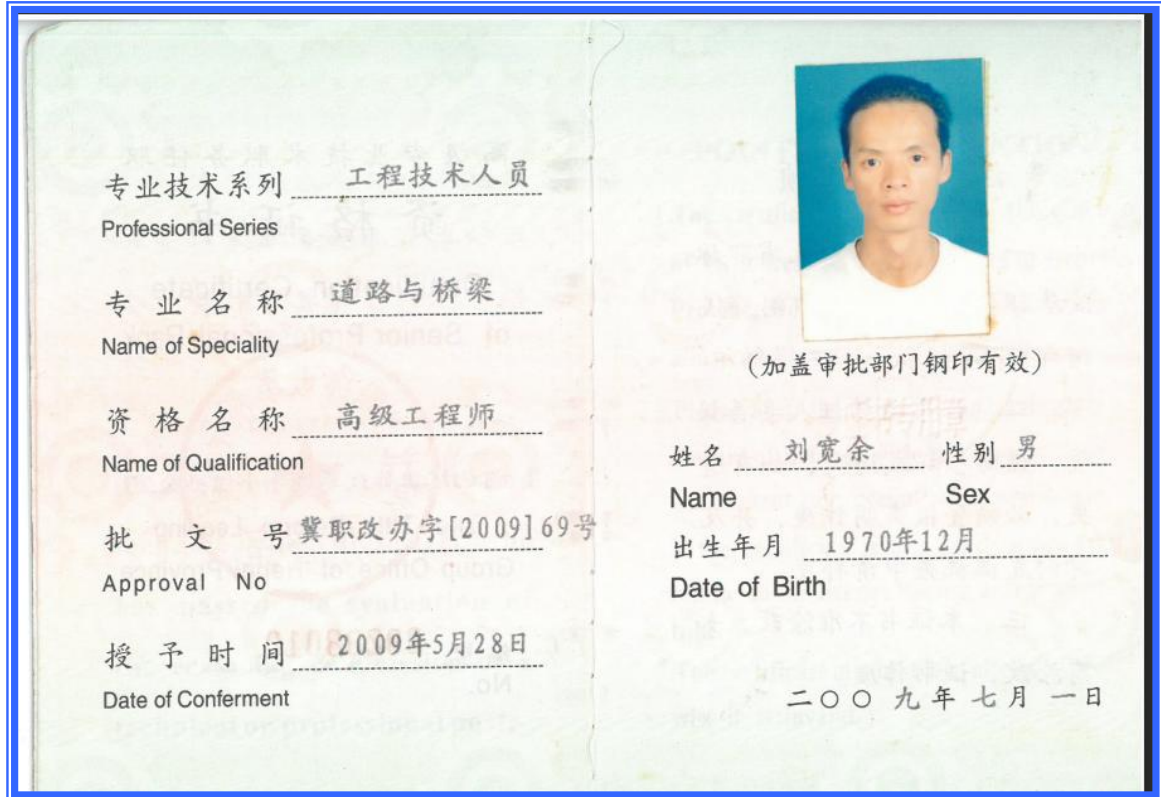 专业技术系列 工程技术人员
Professional Series
专业名称 道路与桥梁
Name of Speciality
资格名称 高级工程师
Name of Qualification
批文号 冀职改办字[2009]69号
Approval No
授予时间 2009年5月28日
Date of Conferment
(加盖审批部门钢印有效)
姓名 刘宽余 性别 男
Name Sex
出生年月 1970年12月
Date of Birth
二〇〇九年七月一日